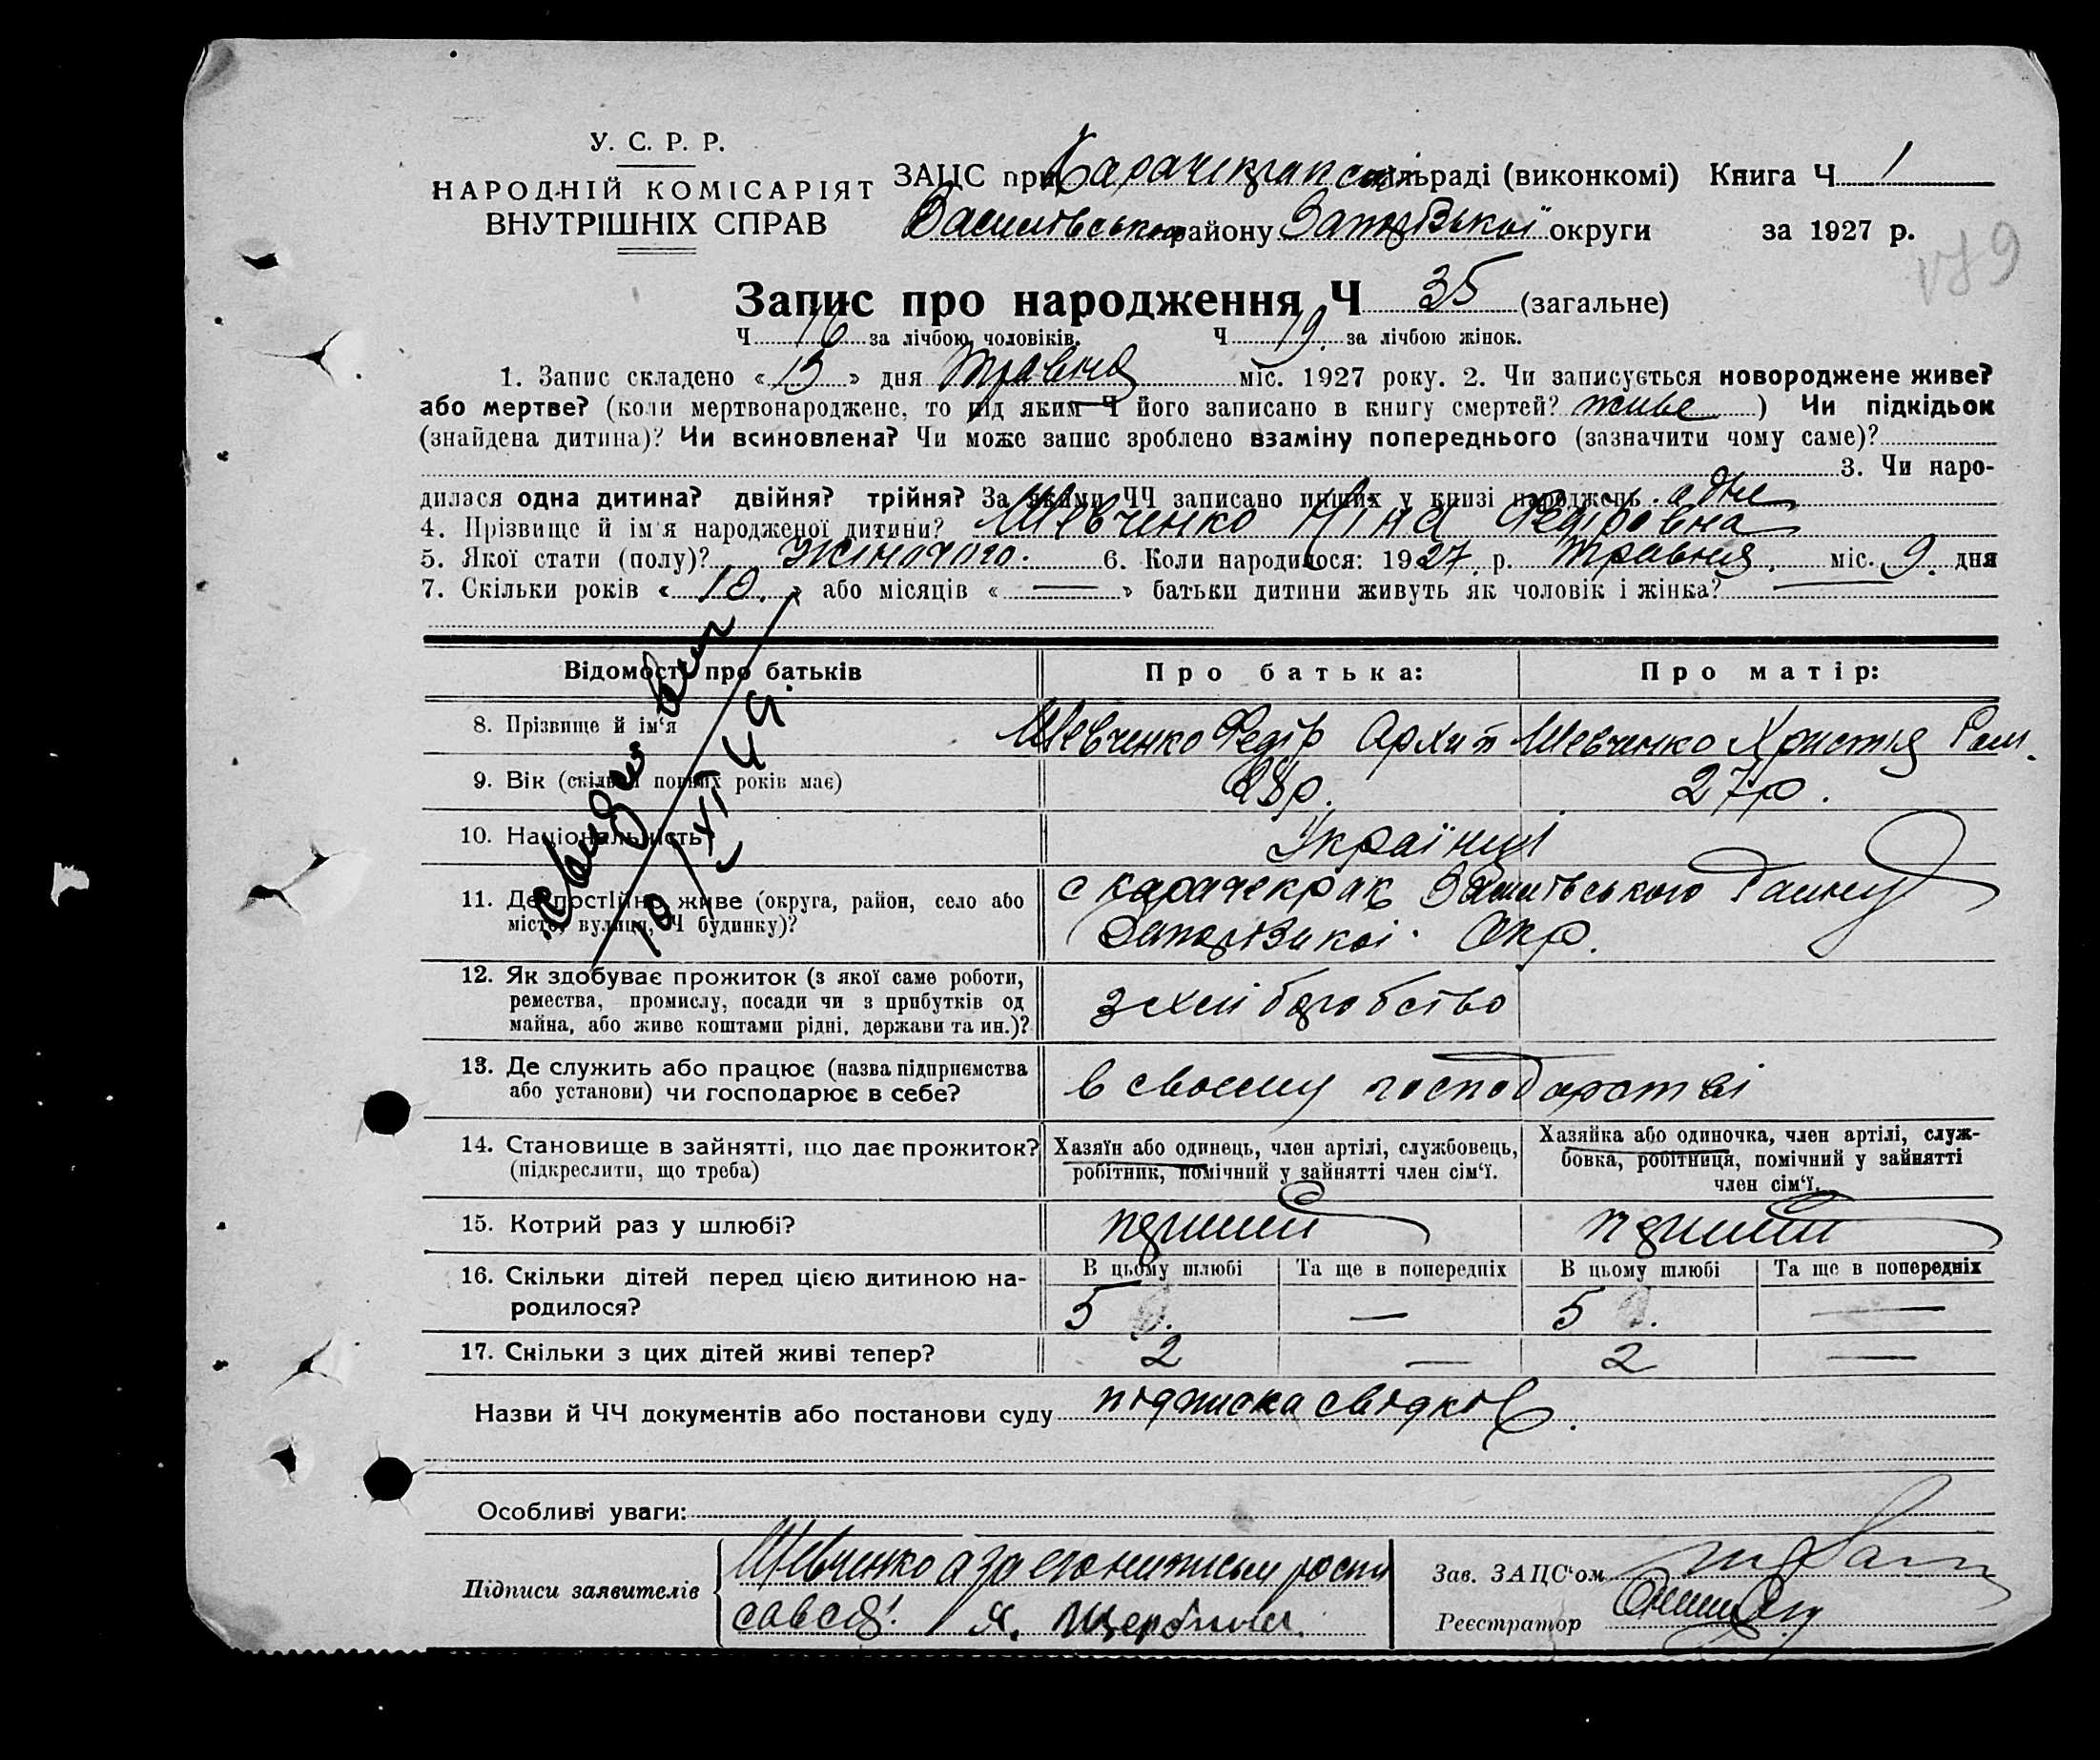 У. С. Р. Р.
НАРОДНІЙ КОМІСАРІЯТ
ВНУТРІШНІХ СПРАВ
ЗАЦС при сільраді (виконкомі) Книга Ч 1
району округи за 1927 р.
179
Запис про народження Ч 35 (загальне)
Ч 16 за лічбою чоловіків. Ч 19. за лічбою жінок.
1. Запис складено « » дня Травня міс. 1927 року. 2. Чи записується новороджене живе?
або мертве? (коли мертвонароджене, то під яким Ч його записано в книгу смертей? живе ) Чи підкідьок
(знайдена дитина)? Чи всиновлена? Чи може запис зроблено взаміну попереднього (зазначити чому саме)?
3. Чи наро-
дилася одна дитина? двійня? трійня? За якими ЧЧ записано инших у книзі народжень. одне
4. Прізвище й ім'я народженої дитини? Шевченко Ніна Федіровна
5. Якої стати (полу)? Жіночого. 6. Коли народилося: 1927. р. Травня. міс. 9. дня
7. Скільки років « 10. » або місяців « — » батьки дитини живуть як чоловік і жінка? —
Відомості про батьків Про батька: Про матір:
8. Прізвище й ім'я Шевченко Федір Архип Шевченко Христя
9. Вік (скільки повних років має) 28р. 27р.
10. Національність Українці
11. Де постійно живе (округа, район, село або
місто, вулиця, Ч будинку)?
с Карачекрак Району
Окр.
12. Як здобуває прожиток (з якої саме роботи,
ремества, промислу, посади чи з прибутків од
майна, або живе коштами рідні, держави та ин.)?
13. Де служить або працює (назва підприємства
або установи) чи господарює в себе?
в своему господарстві
14. Становище в зайнятті, що дає прожиток?
(підкреслити, що треба)
Хазяїн або одинець, член артілі, службовець,
робітник, помічний у зайнятті член сім'ї.
Хазяйка або одиночка, член артілі, служ-
бовка, робітниця, помічний у зайнятті
член сім'ї.
15. Котрий раз у шлюбі?
16. Скільки дітей перед цією дитиною на-
родилося?
В цьому шлюбі Та ще в попередніх В цьому шлюбі Та ще в попередніх
5 — 5 —
17. Скільки з цих дітей живі тепер? 2 — 2 —
Назви й ЧЧ документів або постанови суду підписка свідків.
Особливі уваги:
Підписи заявителів
Шевченко а за
Я. Щербина.
Зав. ЗАЦС'ом
Реєстратор